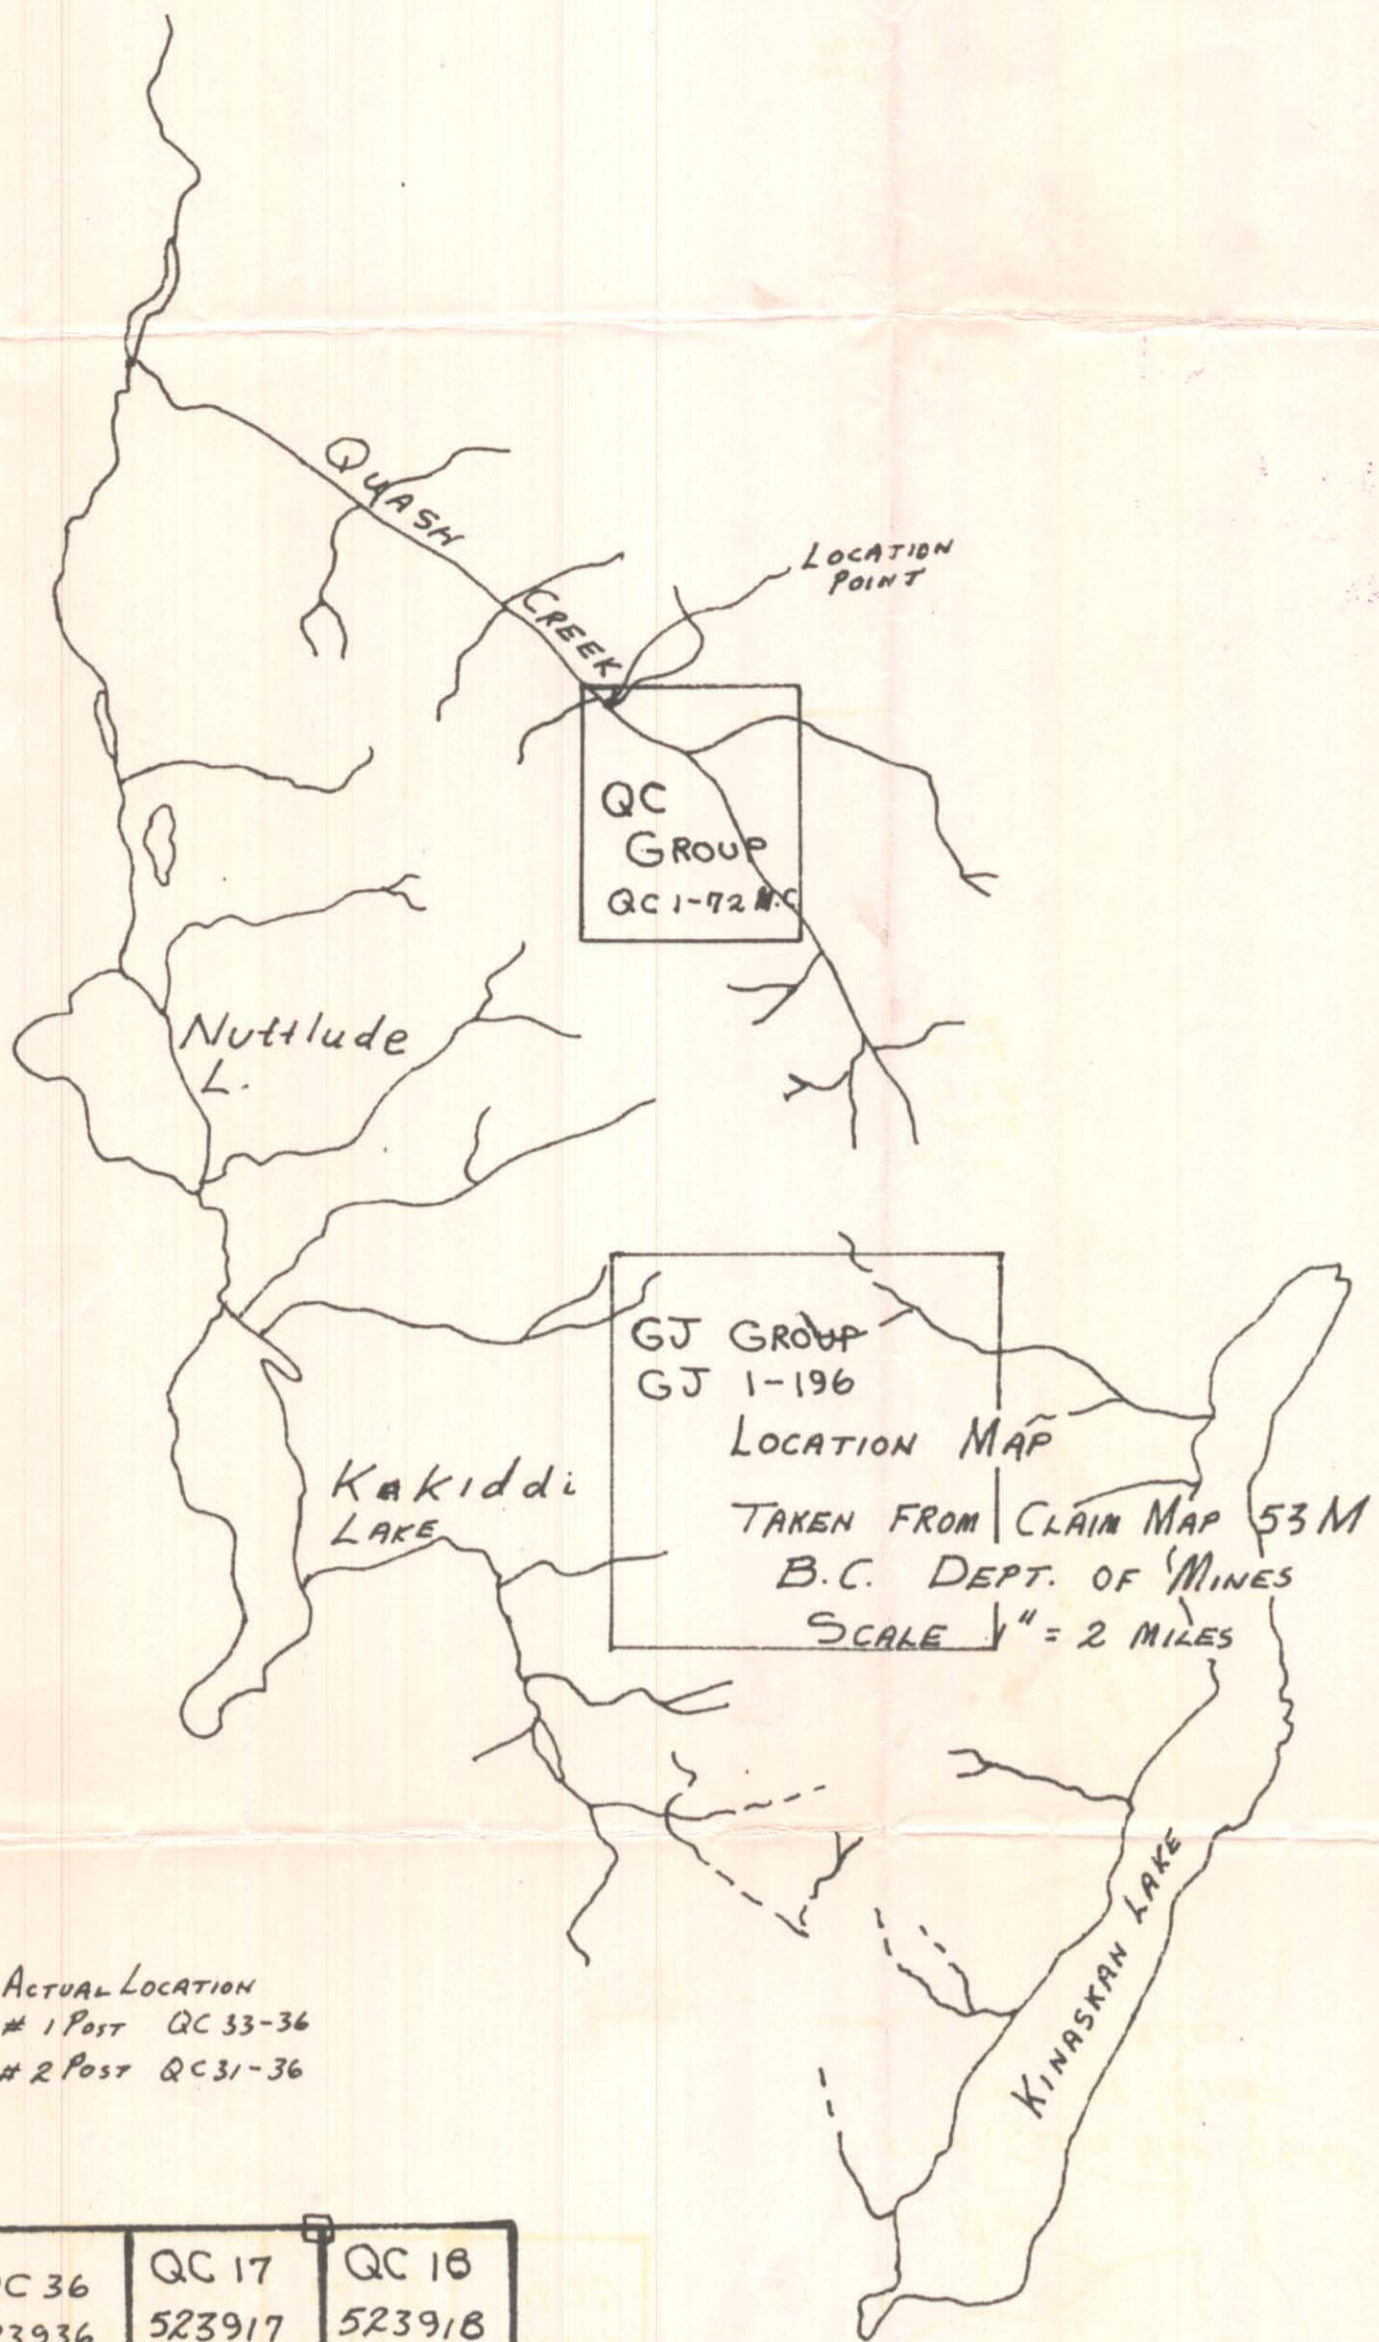 QUASH
CREEK
LOCATION
POINT
QC
GROUP
QC 1-72 M.C
Nuttlude
L.
GJ GROUP
GJ 1-196
LOCATION MAP
Kakiddi
LAKE
TAKEN FROM CLAIM MAP 53 M
B.C. DEPT. OF MINES
SCALE 1" = 2 MILES
KINASKAN LAKE
ACTUAL LOCATION
# 1 POST QC 33-36
# 2 POST QC 31-36
C 36
QC 17
QC 18
3936
523917
523918